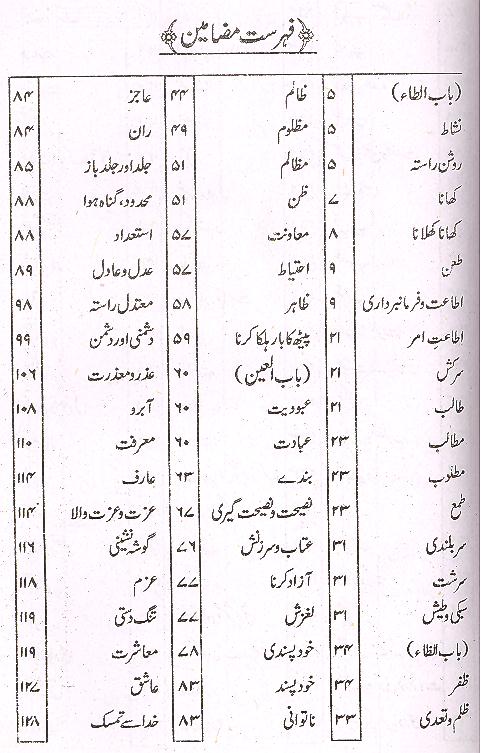 فہرست مضامین
(باب الطاء) ۵ ظالم ۴۴ عاجز ۸۴
نشاط ۵ مظلوم ۴۹ ران ۸۴
روشن راستہ ۵ مظالم ۵۱ جلد اور جلد باز ۸۵
کھانا ۷ ظن ۵۱ محدود، گناہ ہوا ۸۸
کھانا کھلانا ۸ معاونت ۵۷ استعداد ۸۸
طعن ۹ احتیاط ۵۷ عدل و عادل ۸۹
اطاعت و فرمانبرداری ۹ ظاہر ۵۸ معتدل راستہ ۹۸
اطاعتِ امر ۲۱ پیٹھ کا بار ہلکا کرنا ۵۹ دشمنی اور دشمن ۹۹
سرکش ۲۱ (باب العین) ۶۰ عذر و معذرت ۱۰۶
طالب ۲۱ عبودیت ۶۰ آبرو ۱۰۸
مطالب ۲۳ عبادت ۶۰ معرفت ۱۱۰
مطلوب ۲۳ بندے ۶۳ عارف ۱۱۴
طمع ۲۳ نصیحت و نصیحت گیری ۶۷ عزت و عزت والا ۱۱۴
سربلندی ۳۱ عتاب و سرزنش ۷۶ گوشہ نشینی ۱۱۶
سرشت ۳۱ آزاد کرنا ۷۷ عزم ۱۱۸
سبکی و طیش ۳۱ لغزش ۷۷ تنگ دستی ۱۱۹
(باب الظاء) ۳۴ خود پسندی ۷۸ معاشرت ۱۱۹
ظفر ۳۴ خود پسند ۸۳ عاشق ۱۲۷
ظلم و تعدی ۳۳ ناتوانی ۸۳ خدا سے تمسک ۱۲۸